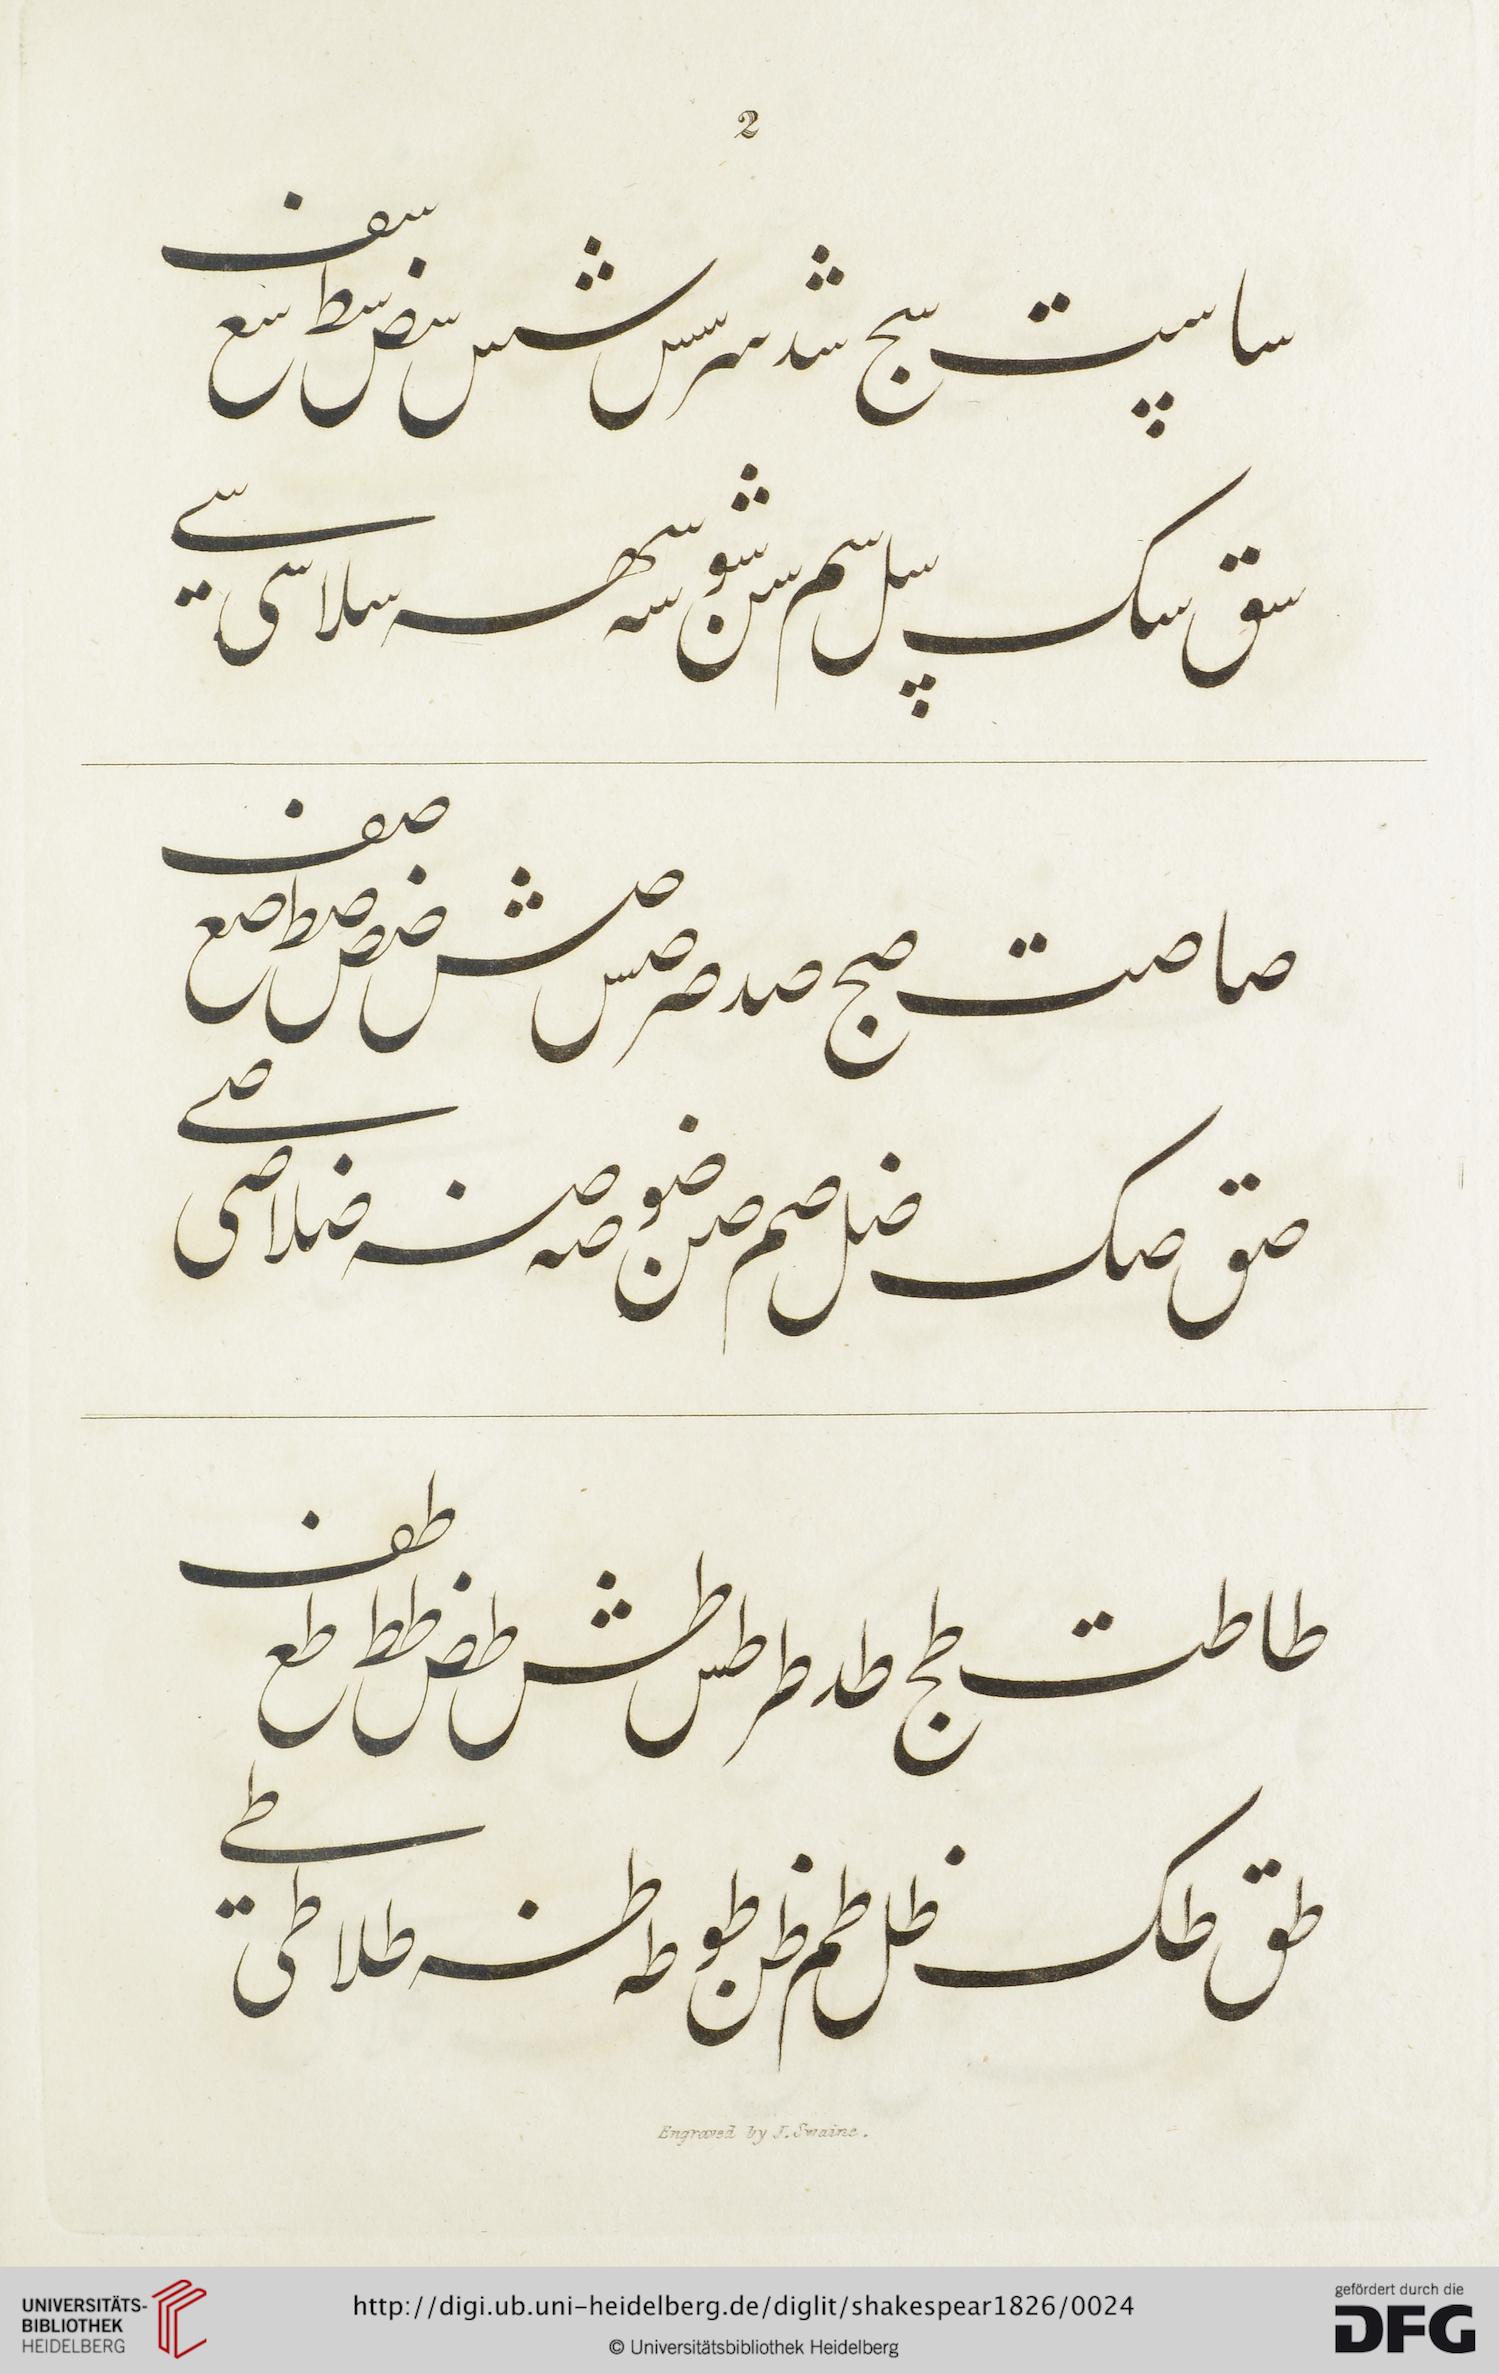 2
سا سپت سج شد سر سس شس سض سط سع سف
سق سک سپل سم سن شو سه سھہ سلا سی سے
صا صت صج صد صر صس صش ضض صط صع صف
صق صک ضل صم صن ضو صه صنه ضلا صی صے
طا طت طج طد طر طس طش طض طط طع طف
طق طک ظل طم ظن طو طه طنه طلا طی طے
Engraved by J. Swaine.
UNIVERSITÄTS-
BIBLIOTHEK
HEIDELBERG
http://digi.ub.uni-heidelberg.de/diglit/shakespear1826/0024
© Universitätsbibliothek Heidelberg
gefördert durch die
DFG